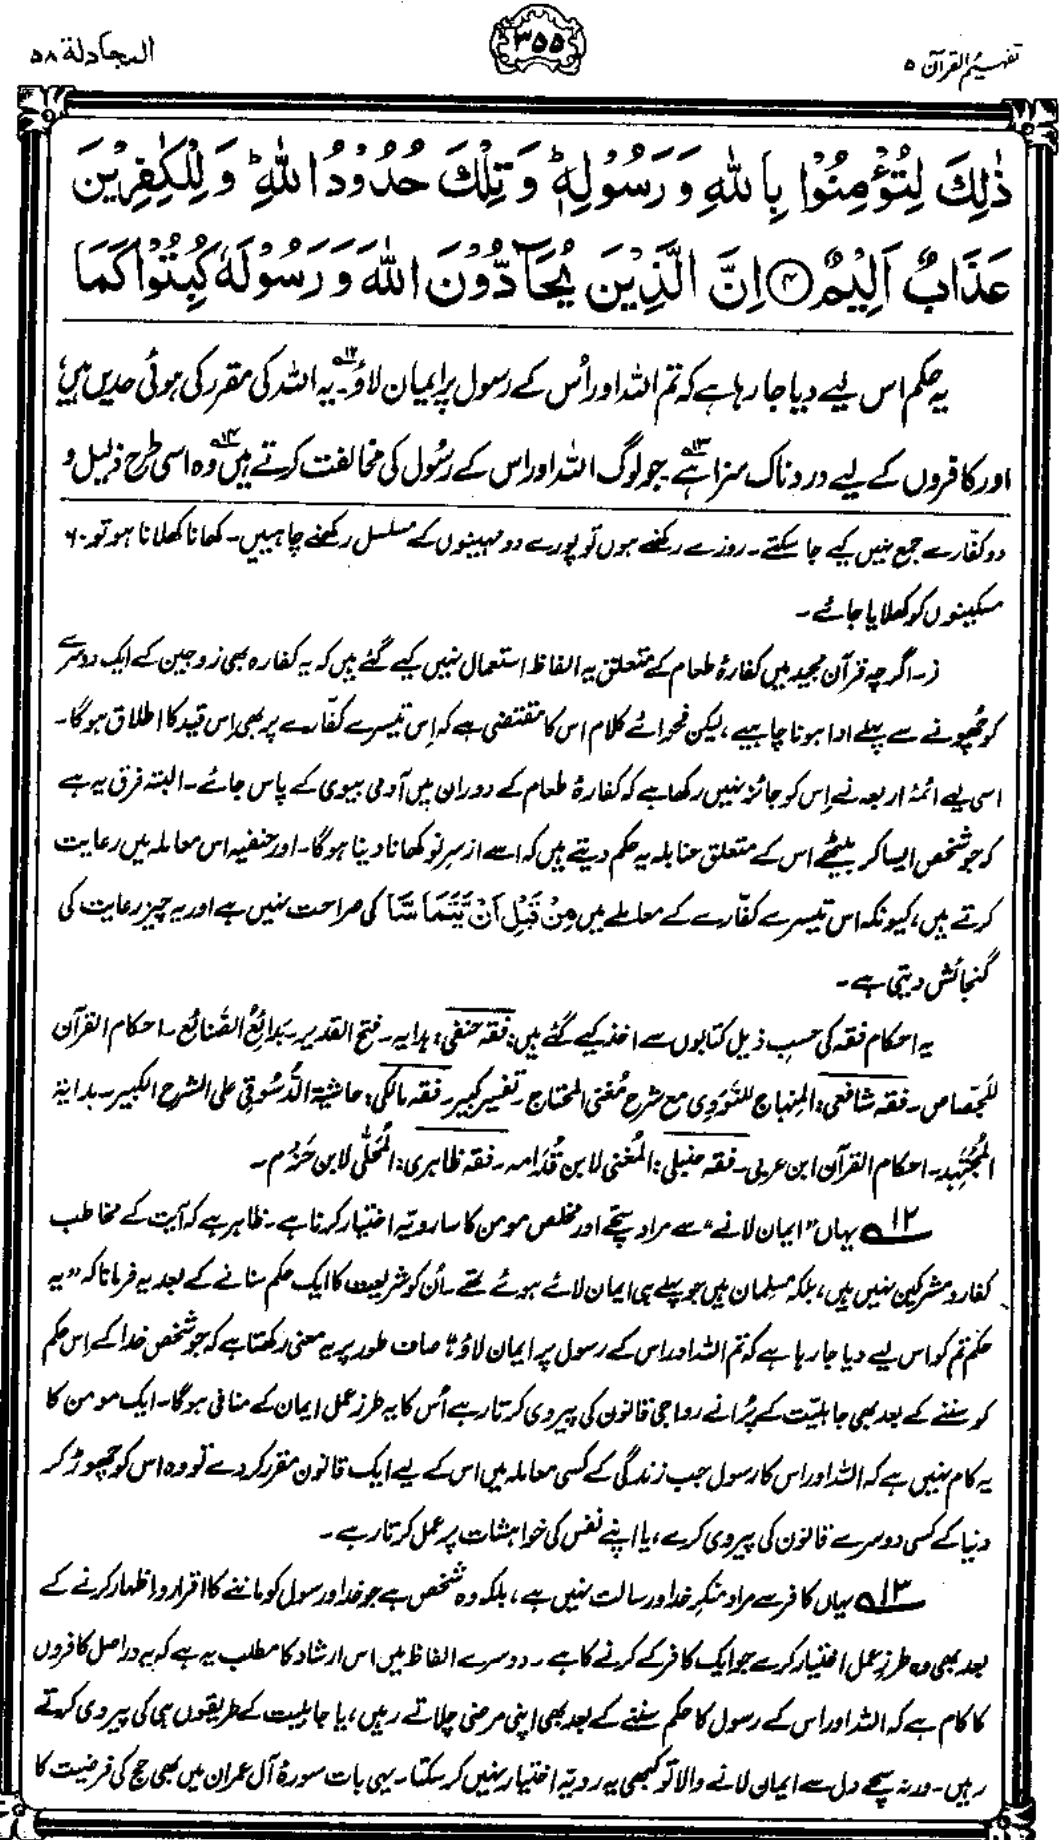 تفہیم القرآن ۵
۳۵۵
المجادلة ۵۸
ذٰلِكَ لِتُؤْمِنُوْا بِاللّٰهِ وَ رَسُوْلِهٖ ؕ وَ تِلْكَ حُدُوْدُ اللّٰهِ ؕ وَ لِلْكٰفِرِيْنَ
عَذَابٌ اَلِيْمٌ ﴿۴﴾ اِنَّ الَّذِيْنَ يُحَآدُّوْنَ اللّٰهَ وَ رَسُوْلَهٗ كُبِتُوْا كَمَا
یہ حکم اس لیے دیا جا رہا ہے کہ تم اللہ اور اُس کے رسول پر ایمان لاؤ۱۲۔ یہ اللہ کی مقرر کی ہوئی حدیں ہیں،
اور کافروں کے لیے دردناک سزا ہے۱۳۔ جو لوگ اللہ اور اس کے رسُول کی مخالفت کرتے ہیں۱۴ وہ اسی طرح ذلیل و
دو کفّارے جمع نہیں کیے جا سکتے۔ روزے رکھنے ہوں تو پورے دو مہینوں کے مسلسل رکھنے چاہییں۔ کھانا کھلانا ہو تو ۶۰
مسکینوں کو کھلایا جائے۔
ذ۔ اگرچہ قرآن مجید میں کفارۂ طعام کے متعلق یہ الفاظ استعمال نہیں کیے گئے ہیں کہ یہ کفارہ بھی زوجین کے ایک دوسرے
کو چُھونے سے پہلے ادا ہونا چاہیے، لیکن فحوائے کلام اس کا مقتضی ہے کہ اِس تیسرے کفّارے پر بھی اِس قید کا اطلاق ہوگا۔
اسی لیے ائمۂ اربعہ نے اِس کو جائز نہیں رکھا ہے کہ کفارۂ طعام کے دوران میں آدمی بیوی کے پاس جائے۔ البتہ فرق یہ ہے
کہ جو شخص ایسا کر بیٹھے اس کے متعلق حنابلہ یہ حکم دیتے ہیں کہ اسے از سرِنو کھانا دینا ہوگا۔ اور حنفیہ اس معاملہ میں رعایت
کرتے ہیں، کیونکہ اس تیسرے کفّارے کے معاملے میں مِنْ قَبْلِ اَنْ يَّتَمَآسَّا کی صراحت نہیں ہے اور یہ چیز رعایت کی
گنجائش دیتی ہے۔
یہ احکام فقہ کی حسبِ ذیل کتابوں سے اخذ کیے گئے ہیں: فقہ حنفی: ہدایہ۔ فتح القدیر۔ بَدائعُ الصَّنائع۔ احکام القرآن
للجَصّاص۔ فقہ شافعی: المنہاج للنَّووِی مع شرح مُغنی المحتاج۔ تفسیر کبیر۔ فقہ مالکی: حاشیۃ الدُّسُوقی علی الشرح الکبیر۔ بدایۃ
المُجتہِد۔ احکام القرآن ابن عربی۔ فقہ حنبلی: المُغنی لابن قُدَامہ۔ فقہ ظاہری: المُحَلّٰی لابن حَزْم۔
۱۲ یہاں ”ایمان لانے“ سے مراد سچّے اور مخلص مومن کا سا رویّہ اختیار کرنا ہے۔ ظاہر ہے کہ آیت کے مخاطب
کفار و مشرکین نہیں ہیں، بلکہ مسلمان ہیں جو پہلے ہی ایمان لائے ہوئے تھے۔ اُن کو شریعت کا ایک حکم سنانے کے بعد یہ فرمانا کہ ”یہ
حکم تم کو اس لیے دیا جا رہا ہے کہ تم اللہ اور اس کے رسول پر ایمان لاؤ“ صاف طور پر یہ معنی رکھتا ہے کہ جو شخص خدا کے اِس حکم
کو سننے کے بعد بھی جاہلیّت کے پُرانے رواجی قانون کی پیروی کرتا رہے اُس کا یہ طرزِ عمل ایمان کے منافی ہوگا۔ ایک مومن کا
یہ کام نہیں ہے کہ اللہ اور اس کا رسول جب زندگی کے کسی معاملہ میں اس کے لیے ایک قانون مقرر کر دے تو وہ اس کو چھوڑ کر
دنیا کے کسی دوسرے قانون کی پیروی کرے، یا اپنے نفس کی خواہشات پر عمل کرتا رہے۔
۱۳ یہاں کافر سے مراد منکرِ خدا و رسالت نہیں ہے، بلکہ وہ شخص ہے جو خدا و رسول کو ماننے کا اقرار و اظہار کرنے کے
بعد بھی وہ طرزِ عمل اختیار کرے جو ایک کافر کے کرنے کا ہے۔ دوسرے الفاظ میں اس ارشاد کا مطلب یہ ہے کہ یہ دراصل کافروں
کا کام ہے کہ اللہ اور اس کے رسول کا حکم سننے کے بعد بھی اپنی مرضی چلاتے رہیں، یا جاہلیت کے طریقوں ہی کی پیروی کرتے
رہیں۔ ورنہ سچے دل سے ایمان لانے والا تو کبھی یہ رویّہ اختیار نہیں کر سکتا۔ یہی بات سورۂ آل عمران میں بھی حج کی فرضیت کا